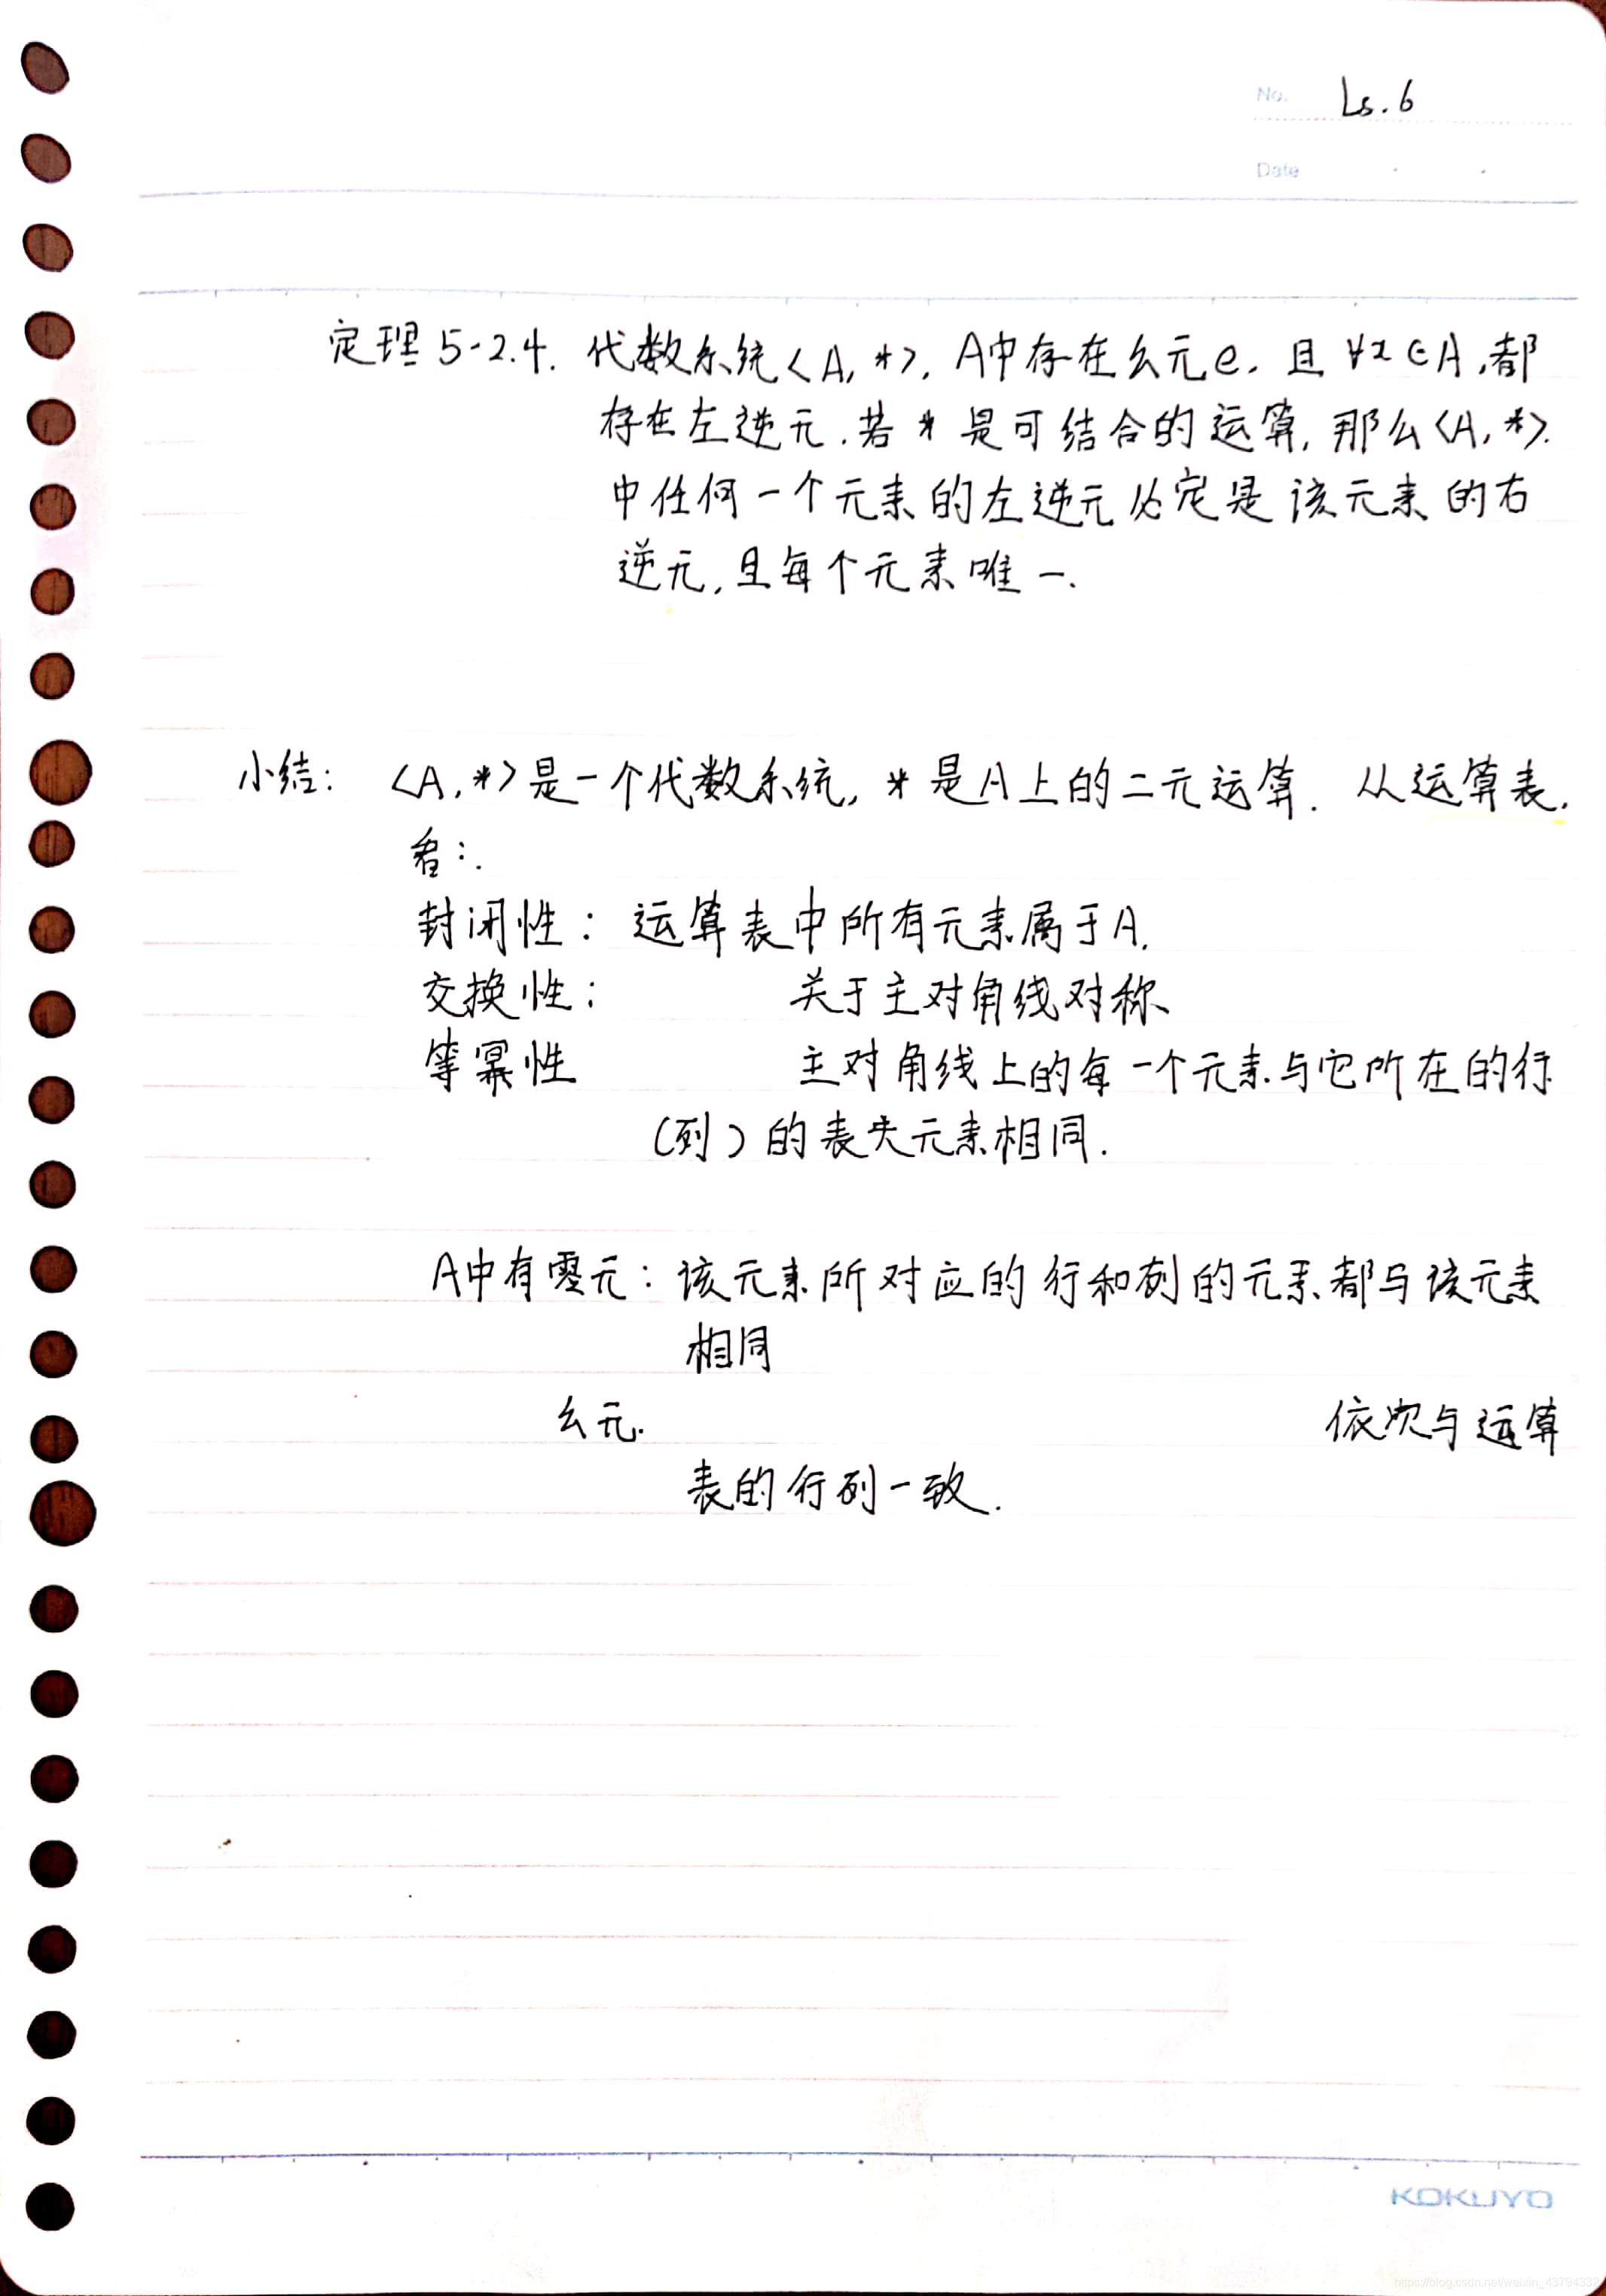 No. Ls.6
Date
定理5-2.4. 代数系统<A,*>, A中存在幺元e. 且∀x∈A,都
存在左逆元.若*是可结合的运算,那么<A,*>.
中任何一个元素的左逆元必定是该元素的右
逆元,且每个元素唯一.
小结: <A,*>是一个代数系统,*是A上的二元运算. 从运算表.
看:.
封闭性: 运算表中所有元素属于A.
交换性: 关于主对角线对称、
等幂性 主对角线上的每一个元素与它所在的行
(列)的表头元素相同.
A中有零元:该元素所对应的行和列的元素都与该元素
相同
幺元. 依次与运算
表的行列一致.
KOKUYO